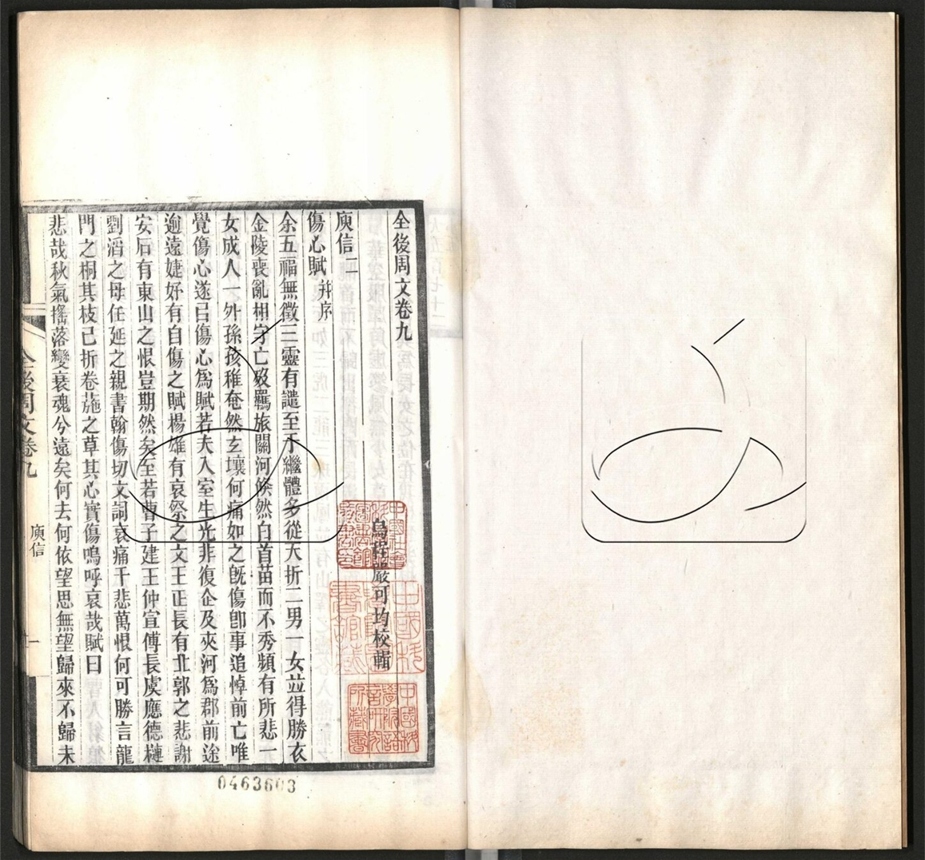 全後周文卷九
烏程嚴可均校輯
庾信二
傷心賦并序
余五福無徵三靈有譴至于繼體多從夭折二男一女並得勝衣
金陵喪亂相守亡歿羈旅關河倏然白首苗而不秀頻有所悲一
女成人一外孫孩稚奄然玄壤何痛如之旣傷卽事追悼前亡唯
覺傷心遂㠯傷心爲賦若夫入室生光非復企及夾河爲郡前途
逾遠婕妤有自傷之賦楊雄有哀祭之文王正長有北郭之悲謝
安石有東山之恨豈期然矣至若曹子建王仲宣傅長虞應德璉
劉滔之母任延之親書翰傷切文詞哀痛千悲萬恨何可勝言龍
門之桐其枝已折卷葹之草其心實傷嗚呼哀哉賦曰
悲哉秋氣搖落變衰魂兮遠矣何去何依望思無望歸來不歸未
全後周文卷九
庾信
一
0463603